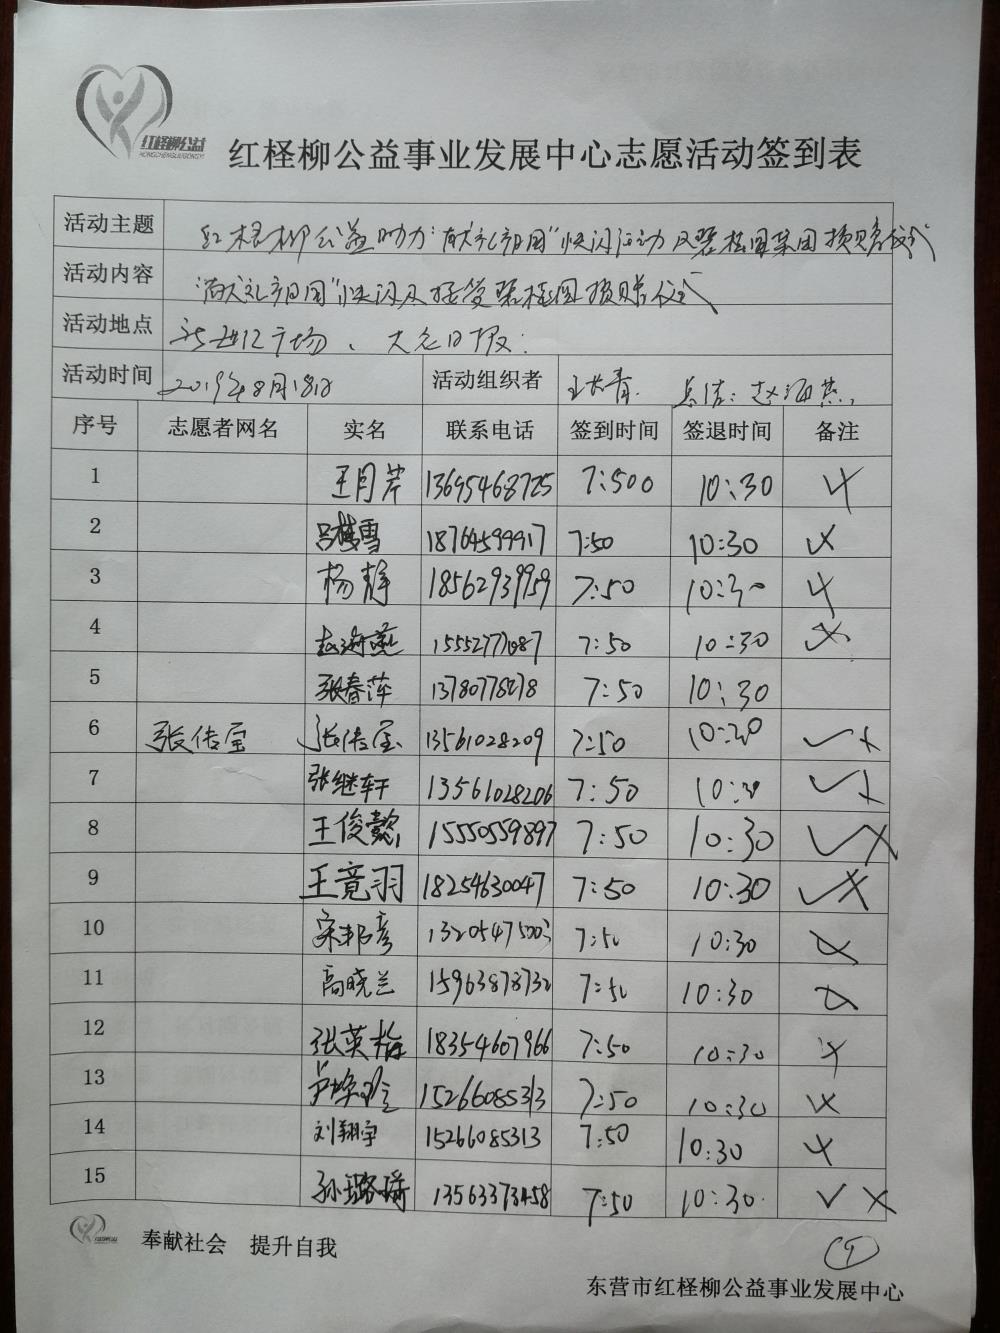 红柽柳公益
HONGCHENGLIUGONGYI
红柽柳公益事业发展中心志愿活动签到表
活动主题 红柽柳公益助力"献礼祖国"快闪活动及碧桂园集团捐赠仪式
活动内容 "献礼祖国"快闪及接受碧桂园捐赠仪式
活动地点 新世纪广场、大众日报
活动时间 2019年8月18日 活动组织者 王长青 总结:赵海燕
序号 志愿者网名 实名 联系电话 签到时间 签退时间 备注
1 王月芹 13695468725 7:500 10:30
2 吕梦雪 18764599917 7:50 10:30
3 杨静 18562939959 7:50 10:30
4 赵海燕 15552771087 7:50 10:30
5 张春萍 7:50 10:30
6 张传宝 张传宝 13561028209 7:50 10:30 ✓ ×
7 张继轩 13561028206 7:50 10:30 ✓
8 王俊懿 15550559897 7:50 10:30 ✓ ×
9 王竟羽 18254630047 7:50 10:30 ✓ ×
10 宋邦彦 7:50 10:30
11 高晓兰 15963878732 7:50 10:30
12 张英梅 18354607966 7:50 10:30
13 15266085313 7:50 10:30
14 刘翔宇 15266085313 7:50 10:30
15 孙璐琦 13563373458 7:50 10:30 ✓ ×
奉献社会 提升自我
东营市红柽柳公益事业发展中心